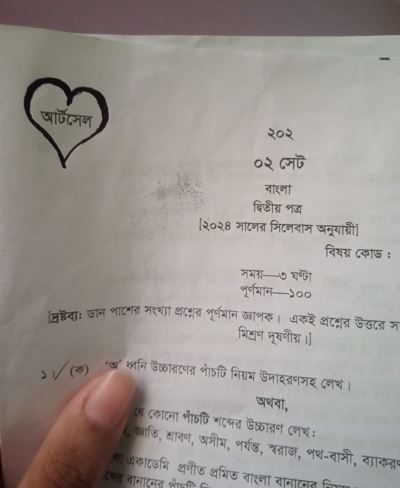 আর্টসেল
২০২
০২ সেট
বাংলা
দ্বিতীয় পত্র
[২০২৪ সালের সিলেবাস অনুযায়ী]
বিষয় কোড :
সময়—৩ ঘণ্টা
পূর্ণমান—১০০
[দ্রষ্টব্য: ডান পাশের সংখ্যা প্রশ্নের পূর্ণমান জ্ঞাপক। একই প্রশ্নের উত্তরে
মিশ্রণ দূষণীয়।]
১ ✓ (ক) 'অ' ধ্বনি উচ্চারণের পাঁচটি নিয়ম উদাহরণসহ লেখ।
অথবা,
যে কোনো পাঁচটি শব্দের উচ্চারণ লেখ :
জ্ঞাতি, শ্রাবণ, অসীম, পর্যন্ত, স্বরাজ, পথ-বাসী,
একাডেমি প্রণীত প্রমিত বাংলা বানানের
বানানের পাঁচটি